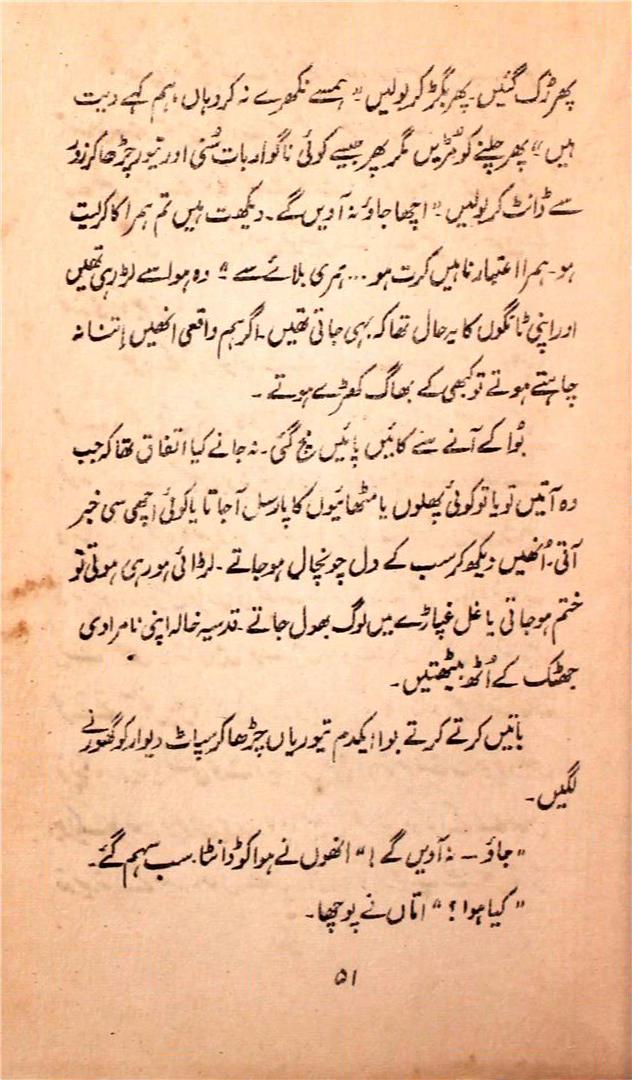 پھر رُک گئیں۔ پھر بگڑ کر بولیں "ہمسے نکھرے نہ کرو ہاں، ہم کہے دیت
ہیں" پھر چلنے کو مُڑیں مگر پھر جیسے کوئی ناگوار بات سُنی اور تیور چڑھا کر زور
سے ڈانٹ کر بولیں۔ "اچھا جاؤ نہ آویں گے۔ دیکھت ہیں تم ہمرا کا کرلیت
ہو۔ ہمرا اعتبار ناہیں کرت ہو... ہمری بلائے سے" وہ ہوا سے لڑ رہی تھیں
اور اپنی ٹانگوں کا یہ حال تھا کہ بہی جاتی تھیں۔ اگر ہم واقعی انھیں اِتنا نہ
چاہتے ہوتے تو کبھی کے بھاگ کھڑے ہوتے۔
بُوا کے آنے سے کائیں پائیں مچ گئی۔ نہ جانے کیا اتفاق تھا کہ جب
وہ آتیں تو یا تو کوئی پھلوں یا مٹھائیوں کا پارسل آجاتا یا کوئی اچھی سی خبر
آتی۔ اُنھیں دیکھ کر سب کے دل چونچال ہوجاتے۔ لڑائی ہو رہی ہوتی تو
ختم ہوجاتی یا غل غپاڑے میں لوگ بھول جاتے۔ قدسیہ خالہ اپنی نامرادی
جھٹک کے اُٹھ بیٹھتیں۔
باتیں کرتے کرتے بوا ایکدم تیوریاں چڑھا کر سپاٹ دیوار کو گھورنے
لگیں۔
"جاؤ — نہ آویں گے!" انھوں نے ہوا کو ڈانٹا۔ سب سہم گئے۔
"کیا ہوا؟" امّاں نے پوچھا۔
۵۱